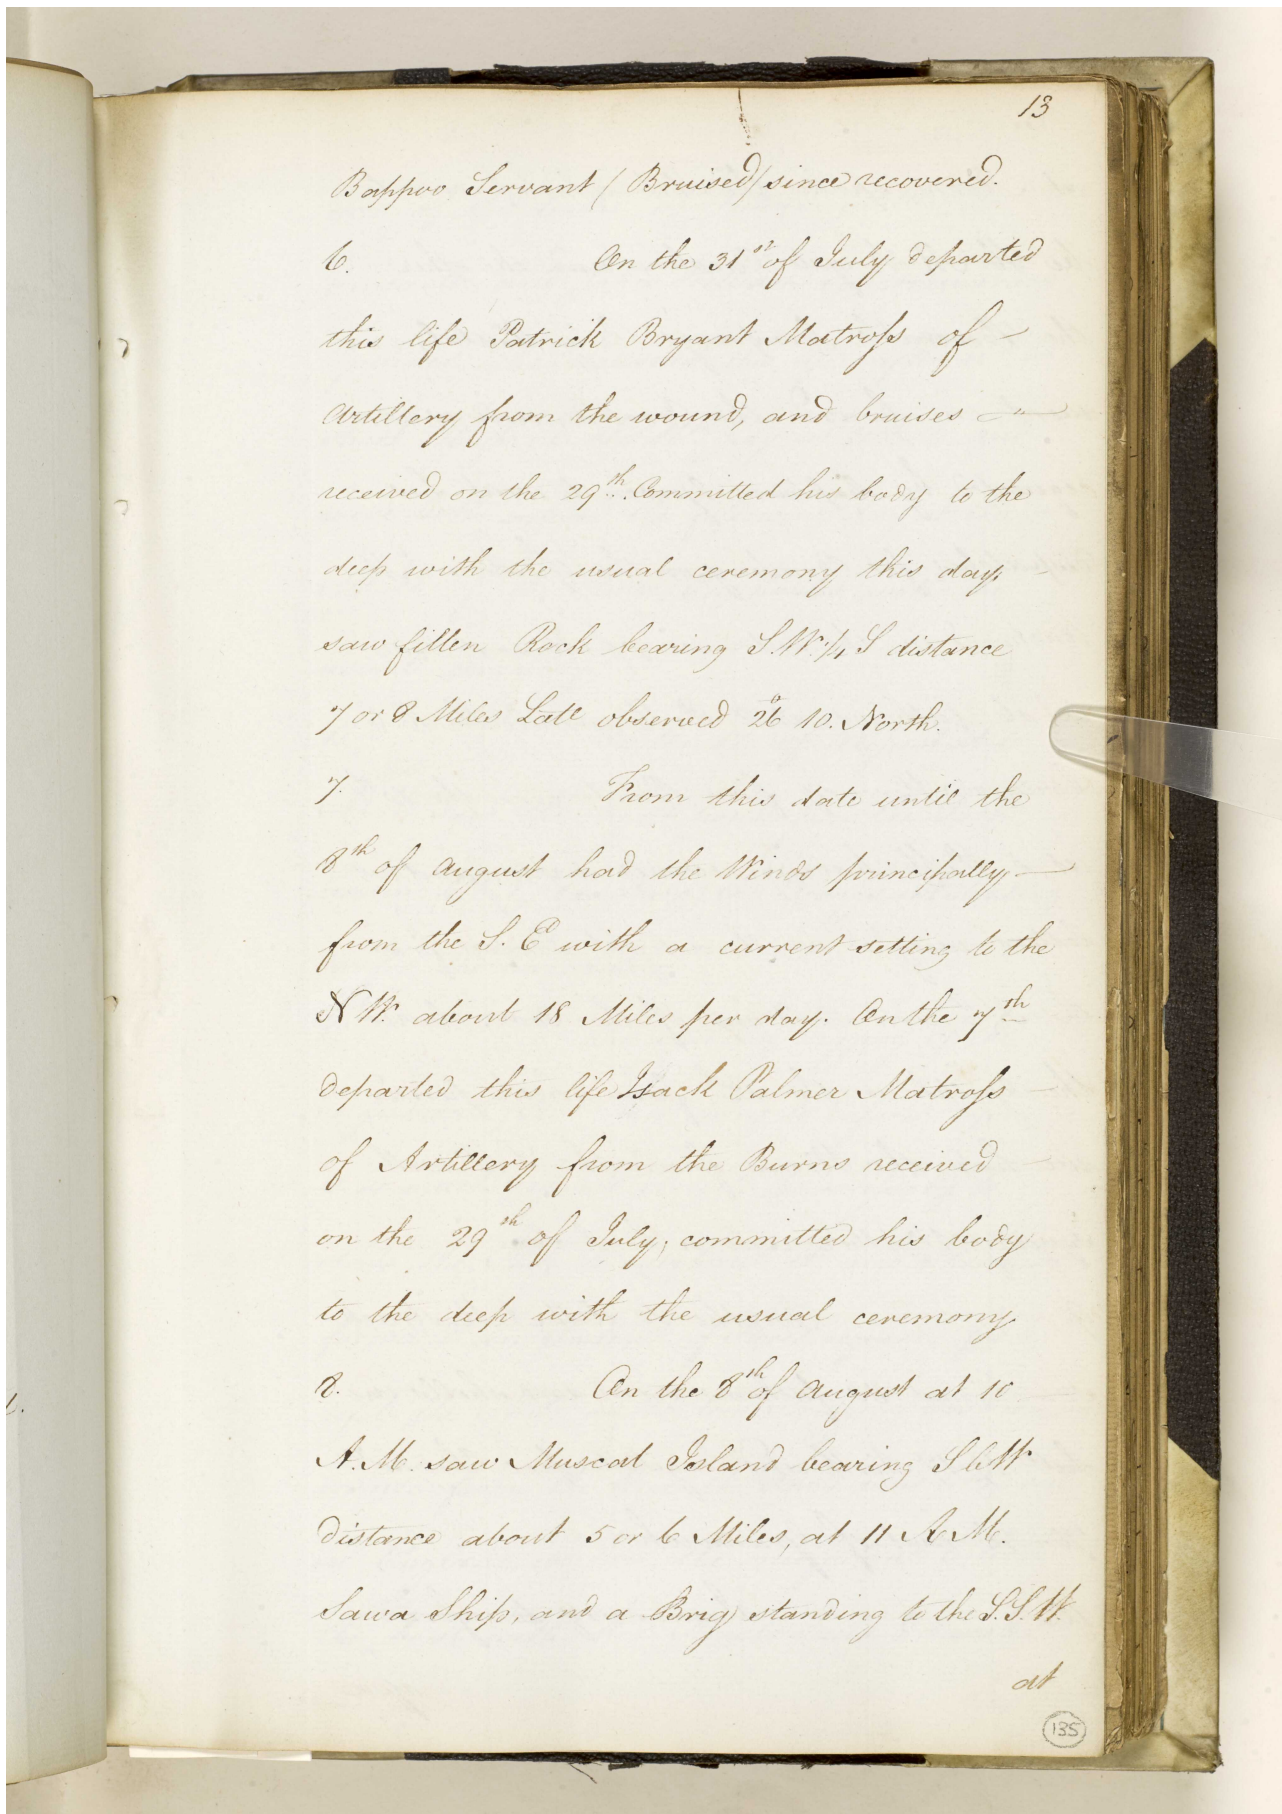 13
Bappoo Servant (Bruised) since recovered.
6. On the 31st of July departed
this life Patrick Bryant Matross of
Artillery from the wound, and bruises
received on the 29th. Committed his body to the
deep with the usual ceremony this day,
saw fillen Rock bearing S.W. 1/4 S distance
7 or 8 Miles Latt observed 26° 10. North.
7. From this date until the
8th of August had the Winds principally
from the S. E with a current setting to the
N W. about 18 Miles per day. On the 7th
departed this life Isack Palmer Matross
of Artillery from the Burns received
on the 29th of July, committed his body
to the deep with the usual ceremony
8. On the 8th of August at 10
A. M. saw Muscat Island bearing S b W
distance about 5 or 6 Miles, at 11 A M.
Saw a Ship, and a Brig standing to the S.S.W.
at
135